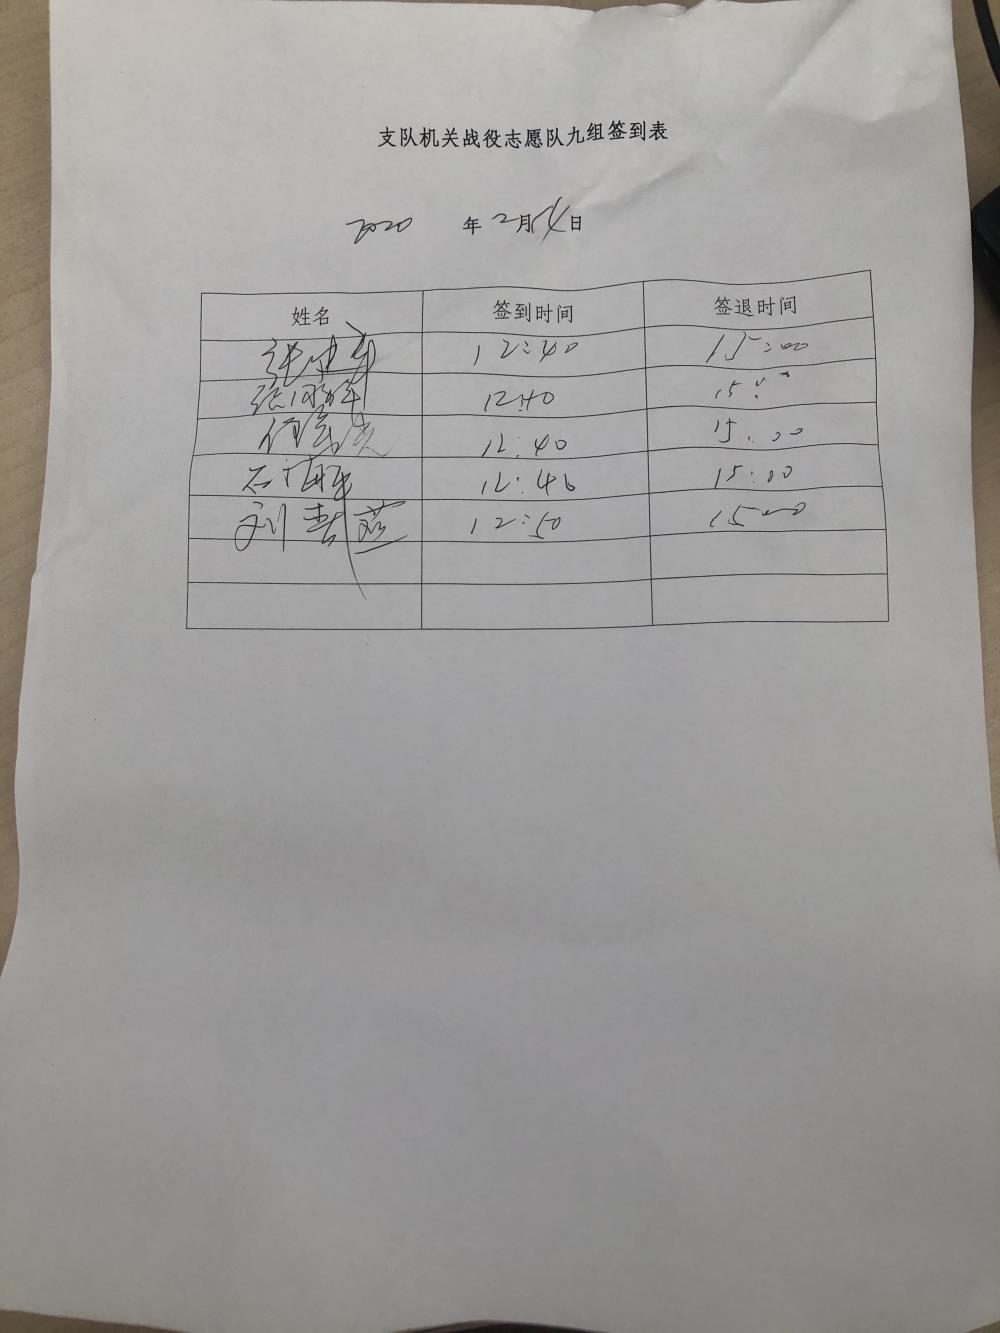 支队机关战役志愿队九组签到表
2020 年 2月14日
姓名 签到时间 签退时间
12:40 15:00
12:40 15:
12:40 15:00
12:46 15:00
刘春燕 12:50 15:00